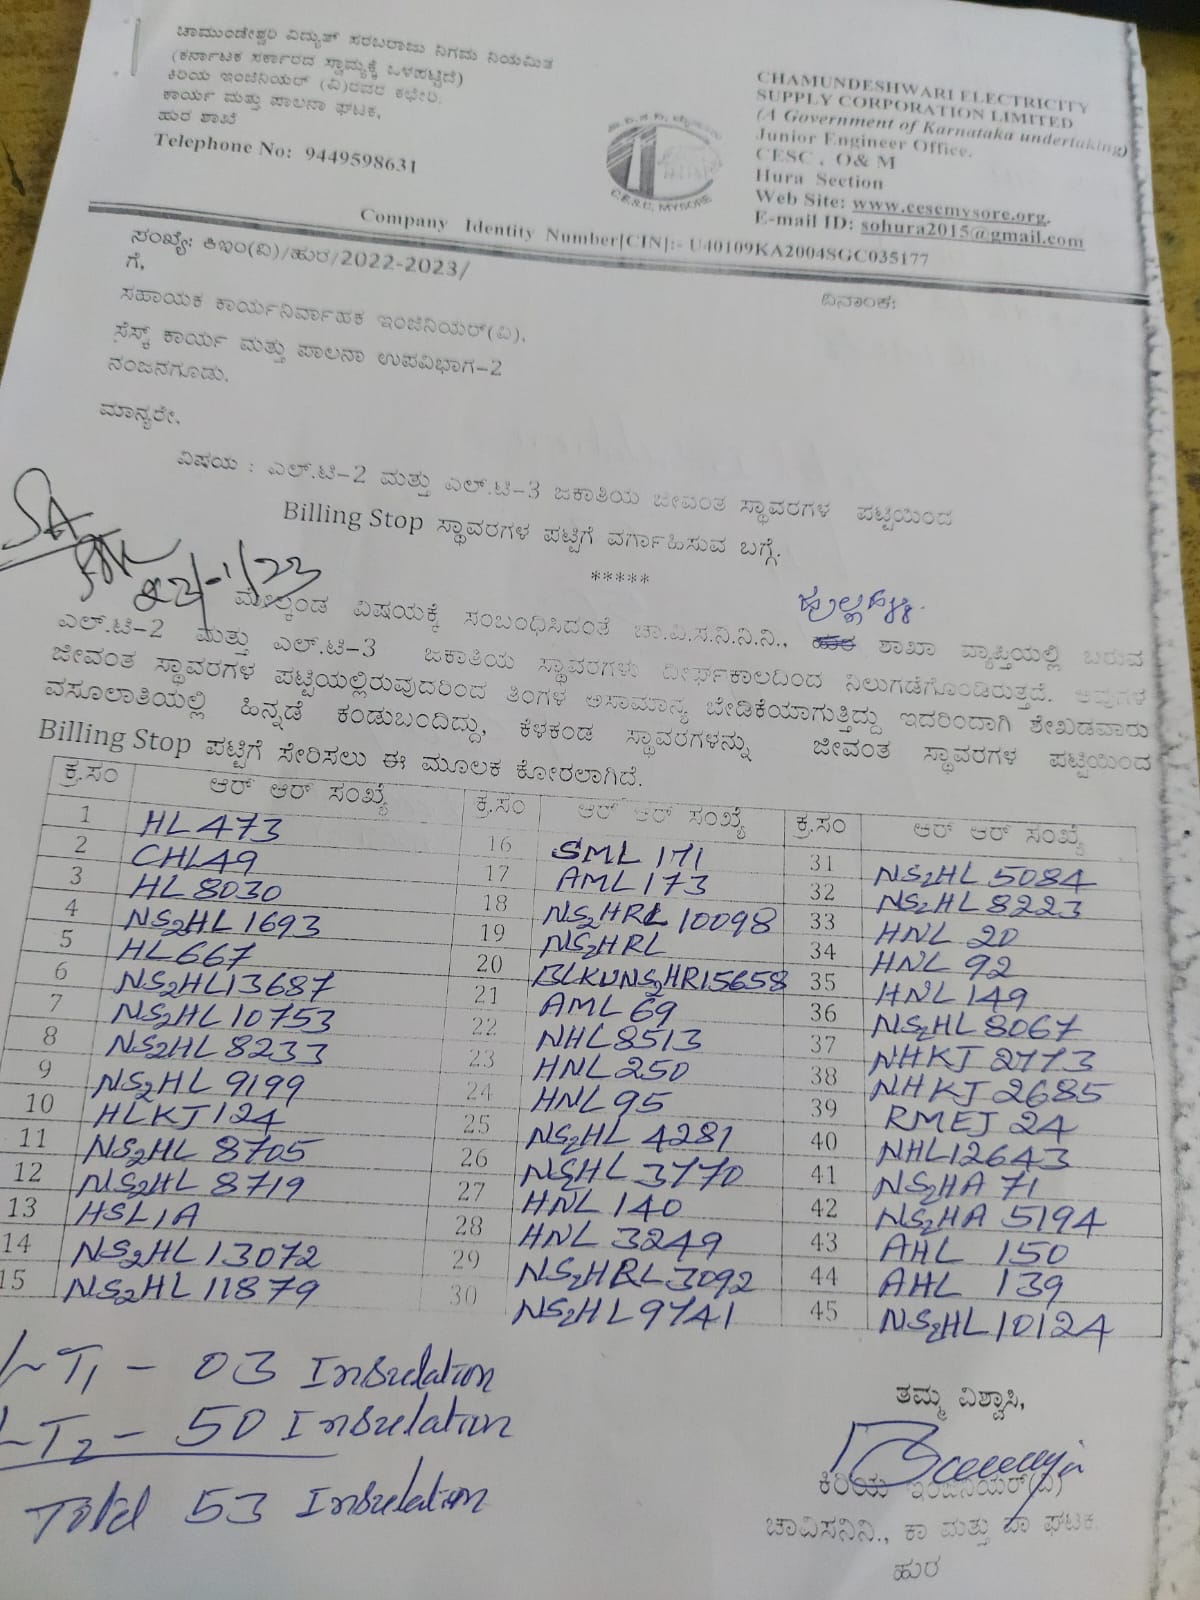 ಚಾಮುಂಡೇಶ್ವರಿ ವಿದ್ಯುತ್ ಸರಬರಾಜು ನಿಗಮ ನಿಯಮಿತ
(ಕರ್ನಾಟಕ ಸರ್ಕಾರದ ಸ್ವಾಮ್ಯಕ್ಕೆ ಒಳಪಟ್ಟಿದೆ)
ಕಿರಿಯ ಇಂಜಿನಿಯರ್ (ವಿ)ರವರ ಕಛೇರಿ,
ಕಾರ್ಯ ಮತ್ತು ಪಾಲನಾ ಘಟಕ,
ಹುರ ಶಾಖೆ
Telephone No: 9449598631
C.E.S.C, MYSORE
CHAMUNDESHWARI ELECTRICITY
SUPPLY CORPORATION LIMITED
(A Government of Karnataka undertaking)
Junior Engineer Office.
CESC , O& M
Hura Section
Web Site: www.cescmysore.org.
E-mail ID: sohura2015@gmail.com
Company Identity Number[CIN]:- U40109KA2004SGC035177
ಸಂಖ್ಯೆ: ಕಿಇಂ(ವಿ)/ಹುರ/2022-2023/
ದಿನಾಂಕ:
ಗೆ,
ಸಹಾಯಕ ಕಾರ್ಯನಿರ್ವಾಹಕ ಇಂಜಿನಿಯರ್(ವಿ),
ಸೆಸ್ಕ್ ಕಾರ್ಯ ಮತ್ತು ಪಾಲನಾ ಉಪವಿಭಾಗ-2
ನಂಜನಗೂಡು.
ಮಾನ್ಯರೇ,
ವಿಷಯ : ಎಲ್.ಟಿ-2 ಮತ್ತು ಎಲ್.ಟಿ-3 ಜಕಾತಿಯ ಜೀವಂತ ಸ್ಥಾವರಗಳ ಪಟ್ಟಿಯಿಂದ
Billing Stop ಸ್ಥಾವರಗಳ ಪಟ್ಟಿಗೆ ವರ್ಗಾಹಿಸುವ ಬಗ್ಗೆ.
*****
SA
23/1/23
ಹುಲ್ಲಹಳ್ಳಿ
ಮೇಲ್ಕಂಡ ವಿಷಯಕ್ಕೆ ಸಂಬಂಧಿಸಿದಂತೆ ಚಾ.ವಿ.ಸ.ನಿ.ನಿ.ನಿ., ಹುರ ಶಾಖಾ ವ್ಯಾಪ್ತಿಯಲ್ಲಿ ಬರುವ
ಎಲ್.ಟಿ-2 ಮತ್ತು ಎಲ್.ಟಿ-3 ಜಕಾತಿಯ ಸ್ಥಾವರಗಳು ದೀರ್ಘಕಾಲದಿಂದ ನಿಲುಗಡೆಗೊಂಡಿರುತ್ತದೆ. ಅವುಗಳ
ಜೀವಂತ ಸ್ಥಾವರಗಳ ಪಟ್ಟಿಯಲ್ಲಿರುವುದರಿಂದ ತಿಂಗಳ ಅಸಾಮಾನ್ಯ ಬೇಡಿಕೆಯಾಗುತ್ತಿದ್ದು ಇದರಿಂದಾಗಿ ಶೇಖಡವಾರು
ವಸೂಲಾತಿಯಲ್ಲಿ ಹಿನ್ನಡೆ ಕಂಡುಬಂದಿದ್ದು, ಕೆಳಕಂಡ ಸ್ಥಾವರಗಳನ್ನು ಜೀವಂತ ಸ್ಥಾವರಗಳ ಪಟ್ಟಿಯಿಂದ
Billing Stop ಪಟ್ಟಿಗೆ ಸೇರಿಸಲು ಈ ಮೂಲಕ ಕೋರಲಾಗಿದೆ.
ಕ್ರ.ಸಂ ಆರ್ ಆರ್ ಸಂಖ್ಯೆ ಕ್ರ.ಸಂ ಆರ್ ಆರ್ ಸಂಖ್ಯೆ ಕ್ರ.ಸಂ ಆರ್ ಆರ್ ಸಂಖ್ಯೆ
1 HL 473 16 SML 171 31 NS2HL 5084
2 CHL49 17 AML 173 32 NS2HL 8223
3 HL 8030 18 NS2HRL 10098 33 HNL 20
4 NS2HL 1693 19 NS2HRL 34 HNL 92
5 HL667 20 BLKUNS2HR15658 35 HNL 149
6 NS2HL13687 21 AML 69 36 NS2HL 8067
7 NS2HL 10753 22 NHL8513 37 NHKJ 2773
8 NS2HL 8233 23 HNL 250 38 NHKJ 2685
9 NS2HL 9199 24 HNL 95 39 RMEJ 24
10 HLKJ 124 25 NS2HL 4281 40 NHL12643
11 NS2HL 8705 26 NS2HL 3770 41 NS2HA 71
12 NS2HL 8719 27 HNL 140 42 NS2HA 5194
13 HSL1A 28 HNL 3249 43 AHL 150
14 NS2HL 13072 29 NS2HRL 3092 44 AHL 139
15 NS2HL 11879 30 NS2HL9741 45 NS2HL10124
LT1 - 03 Insulation
LT2 - 50 Insulation
Total 53 Insulation
ತಮ್ಮ ವಿಶ್ವಾಸಿ,
ಕಿರಿಯ ಇಂಜಿನಿಯರ್(ವಿ)
ಚಾವಿಸನಿನಿ., ಕಾ ಮತ್ತು ಪಾ ಘಟಕ.
ಹುರ